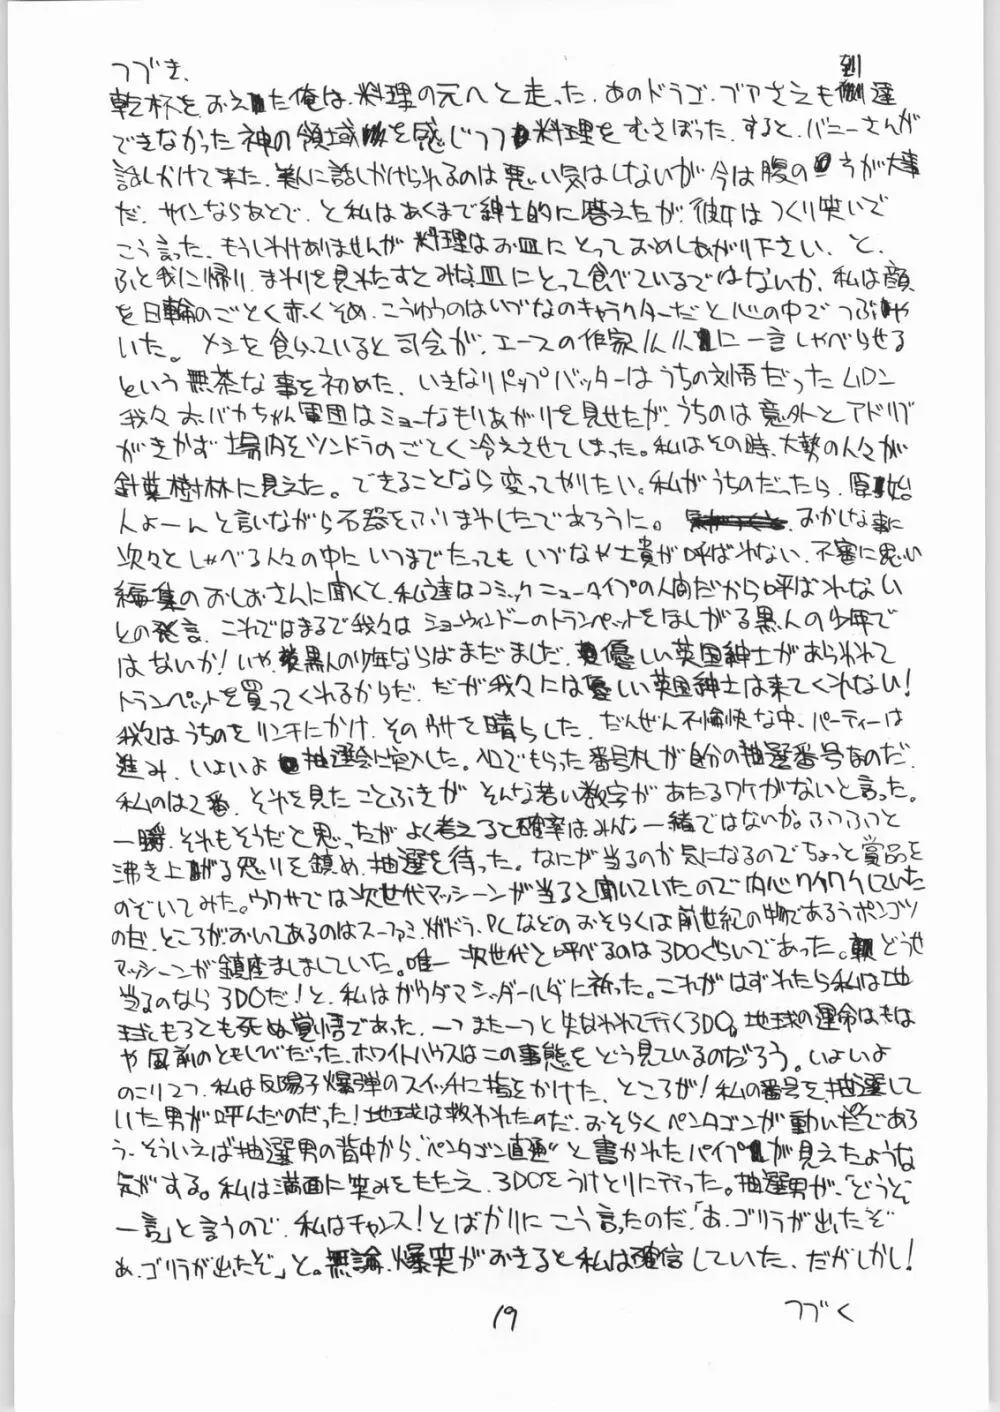 つづき.
乾杯をおえた俺は、料理の元へと走った。あのドラゴ・ブアさえも到達
できなかった神の領域を感じつつ料理をむさぼった。すると、バニーさんが
話しかけて来た。美人に話しかけられるのは悪い気はしないが今は腹のうが大事
だ。サインならあとで、と私はあくまで紳士的に答えたが、彼女はつくり笑いで
こう言った。もうしわけありませんが料理はお皿にとっておめしあがり下さい、と。
ふと我に帰り、まわりを見わたすとみな皿にとって食べているではないか。私は顔
を日輪のごとく赤くそめ、こうゆうのはいづなのキャラクターだと心の中でつぶや
いた。メシを食らっていると司会が、エースの作家ハハに一言しゃべらせる
という無茶な事を初めた。いきなりトップバッターはうちの刘悟だったムロン
我々おバカちゃん軍団はミョーなもりあがりを見せたが、うちのは意外とアドリブ
がきかず場内をツンドラのごとく冷えさせてしまった。私はその時、大勢の人々が
針葉樹林に見えた。できることなら変ってやりたい。私がうちのだったら、原始
人よーんと言いながら石器をふりまわしたであろうに。おかしな事に
次々としゃべる人々の中にいつまでたってもいづなや士貴が呼ばれない。不審に思い
編集のおしおさんに聞くと、私達はコミックニュータイプの人間だから呼ばれない
との発言。これではまるで我々はショーウィンドーのトランペットをほしがる黒人の少年で
はないか!いや、黒人の少年ならばまだました。優しい英国紳士があらわれて
トランペットを買ってくれるからだ。だが我々には優しい英国紳士は来てくれない!
我々はうちのをリンチにかけ、そのウサを晴らした。だんぜん不愉快な中、パーティーは
進み、いよいよ抽選会に突入した。入口でもらった番号札が自分の抽選番号なのだ。
私のは2番。それを見たことぶきがそんな若い数字があたるワケがないと言った。
一瞬、それもそうだと思ったがよく考えると確率はみんな一緒ではないか。ふつふつと
沸き上がる怒りを鎮め、抽選を待った。なにが当るのか気になるのでちょっと賞品を
のぞいてみた。ウワサでは次世代マッシーンが当ると聞いていたので内心ワクワクしていた
のだ。ところがおいてあるのはスーファミ、メガドラ、PCなどのおそらくは前世紀の物であろうポンコツ
マッシーンが鎮座ましましていた。唯一次世代と呼べるのは3DOぐらいであった。どうせ
当るのなら3DOだ!と、私はガウダマシッダールダに祈った。これがはずれたら私は地
球もろとも死ぬ覚悟であった。一つまた一つと失われて行く3DO。地球の運命はもは
や風前のともしびだった。ホワイトハウスはこの事態をどう見ているのだろう。いよいよ
のこり2つ、私は反陽子爆弾のスイッチに指をかけた。ところが!私の番号を、抽選して
いた男が呼んだのだった!地球は救われたのだ。おそらくペンタゴンが動いたのであろ
う。そういえば抽選男の背中から、“ペンタゴン直通”と書かれたパイプが見えたような
気がする。私は満面に笑みをたたえ、3DOをうけとりに行った。抽選男が、「どうぞ
一言」と言うので、私はチャンス!とばかりにこう言ったのだ。「あ、ゴリラが出たぞ
あ、ゴリラが出たぞ」と。無論、爆笑がおきると私は確信していた。だがしかし!
19
つづく